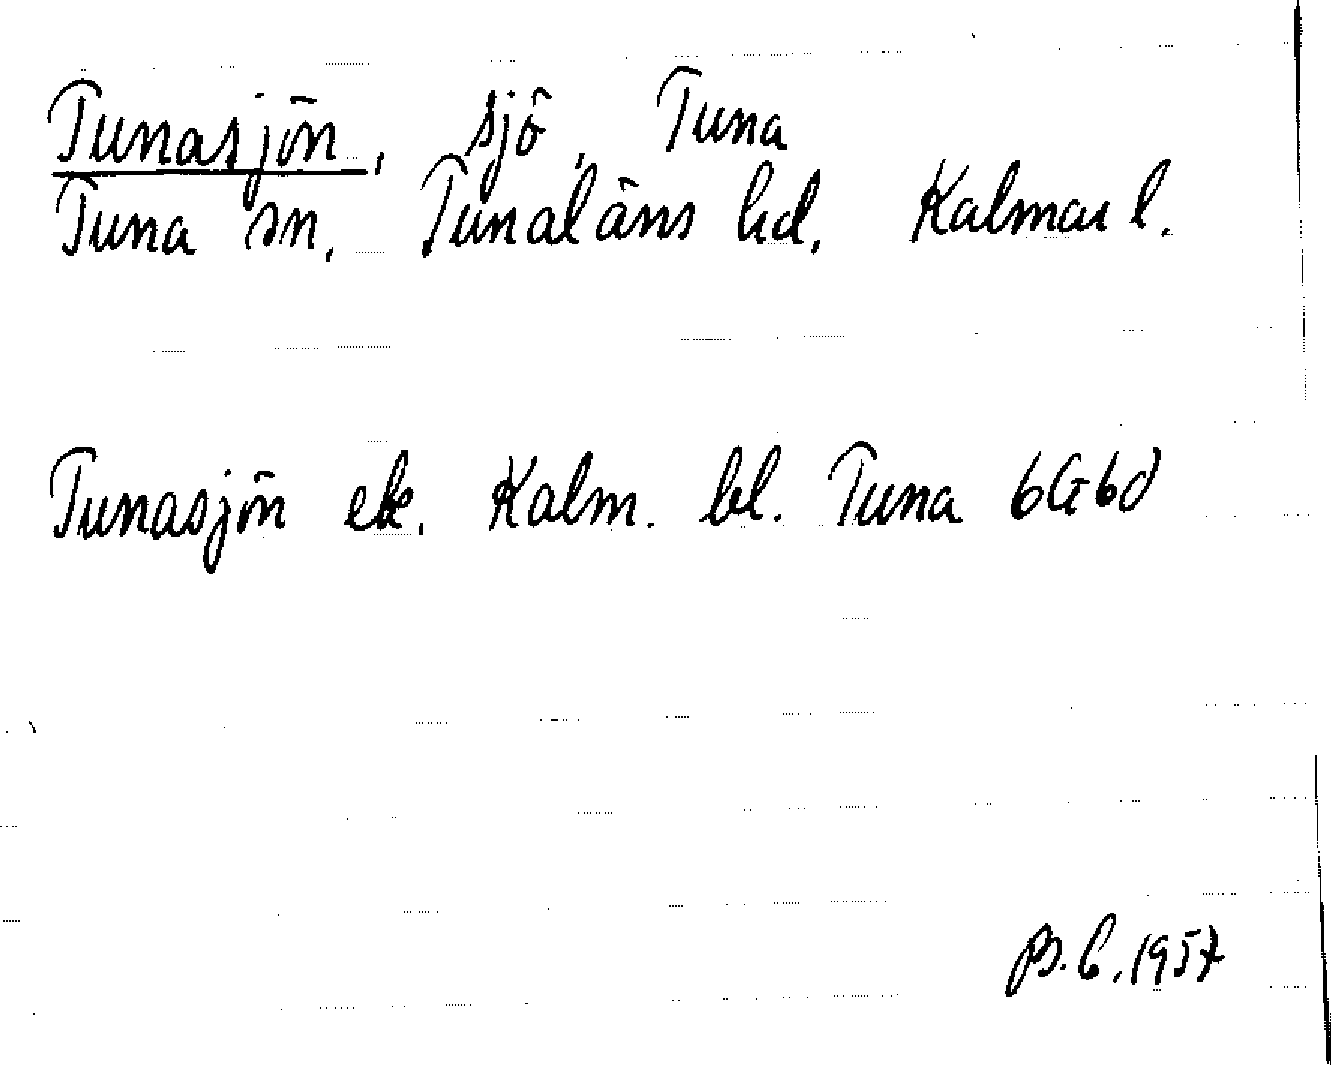 Tunasjön, sjö, Tuna
Tuna sn. Tunaläns hd. Kalmar l.
Tunasjön ek. Kalm. bl. Tuna 6G6d
B.C. 1957